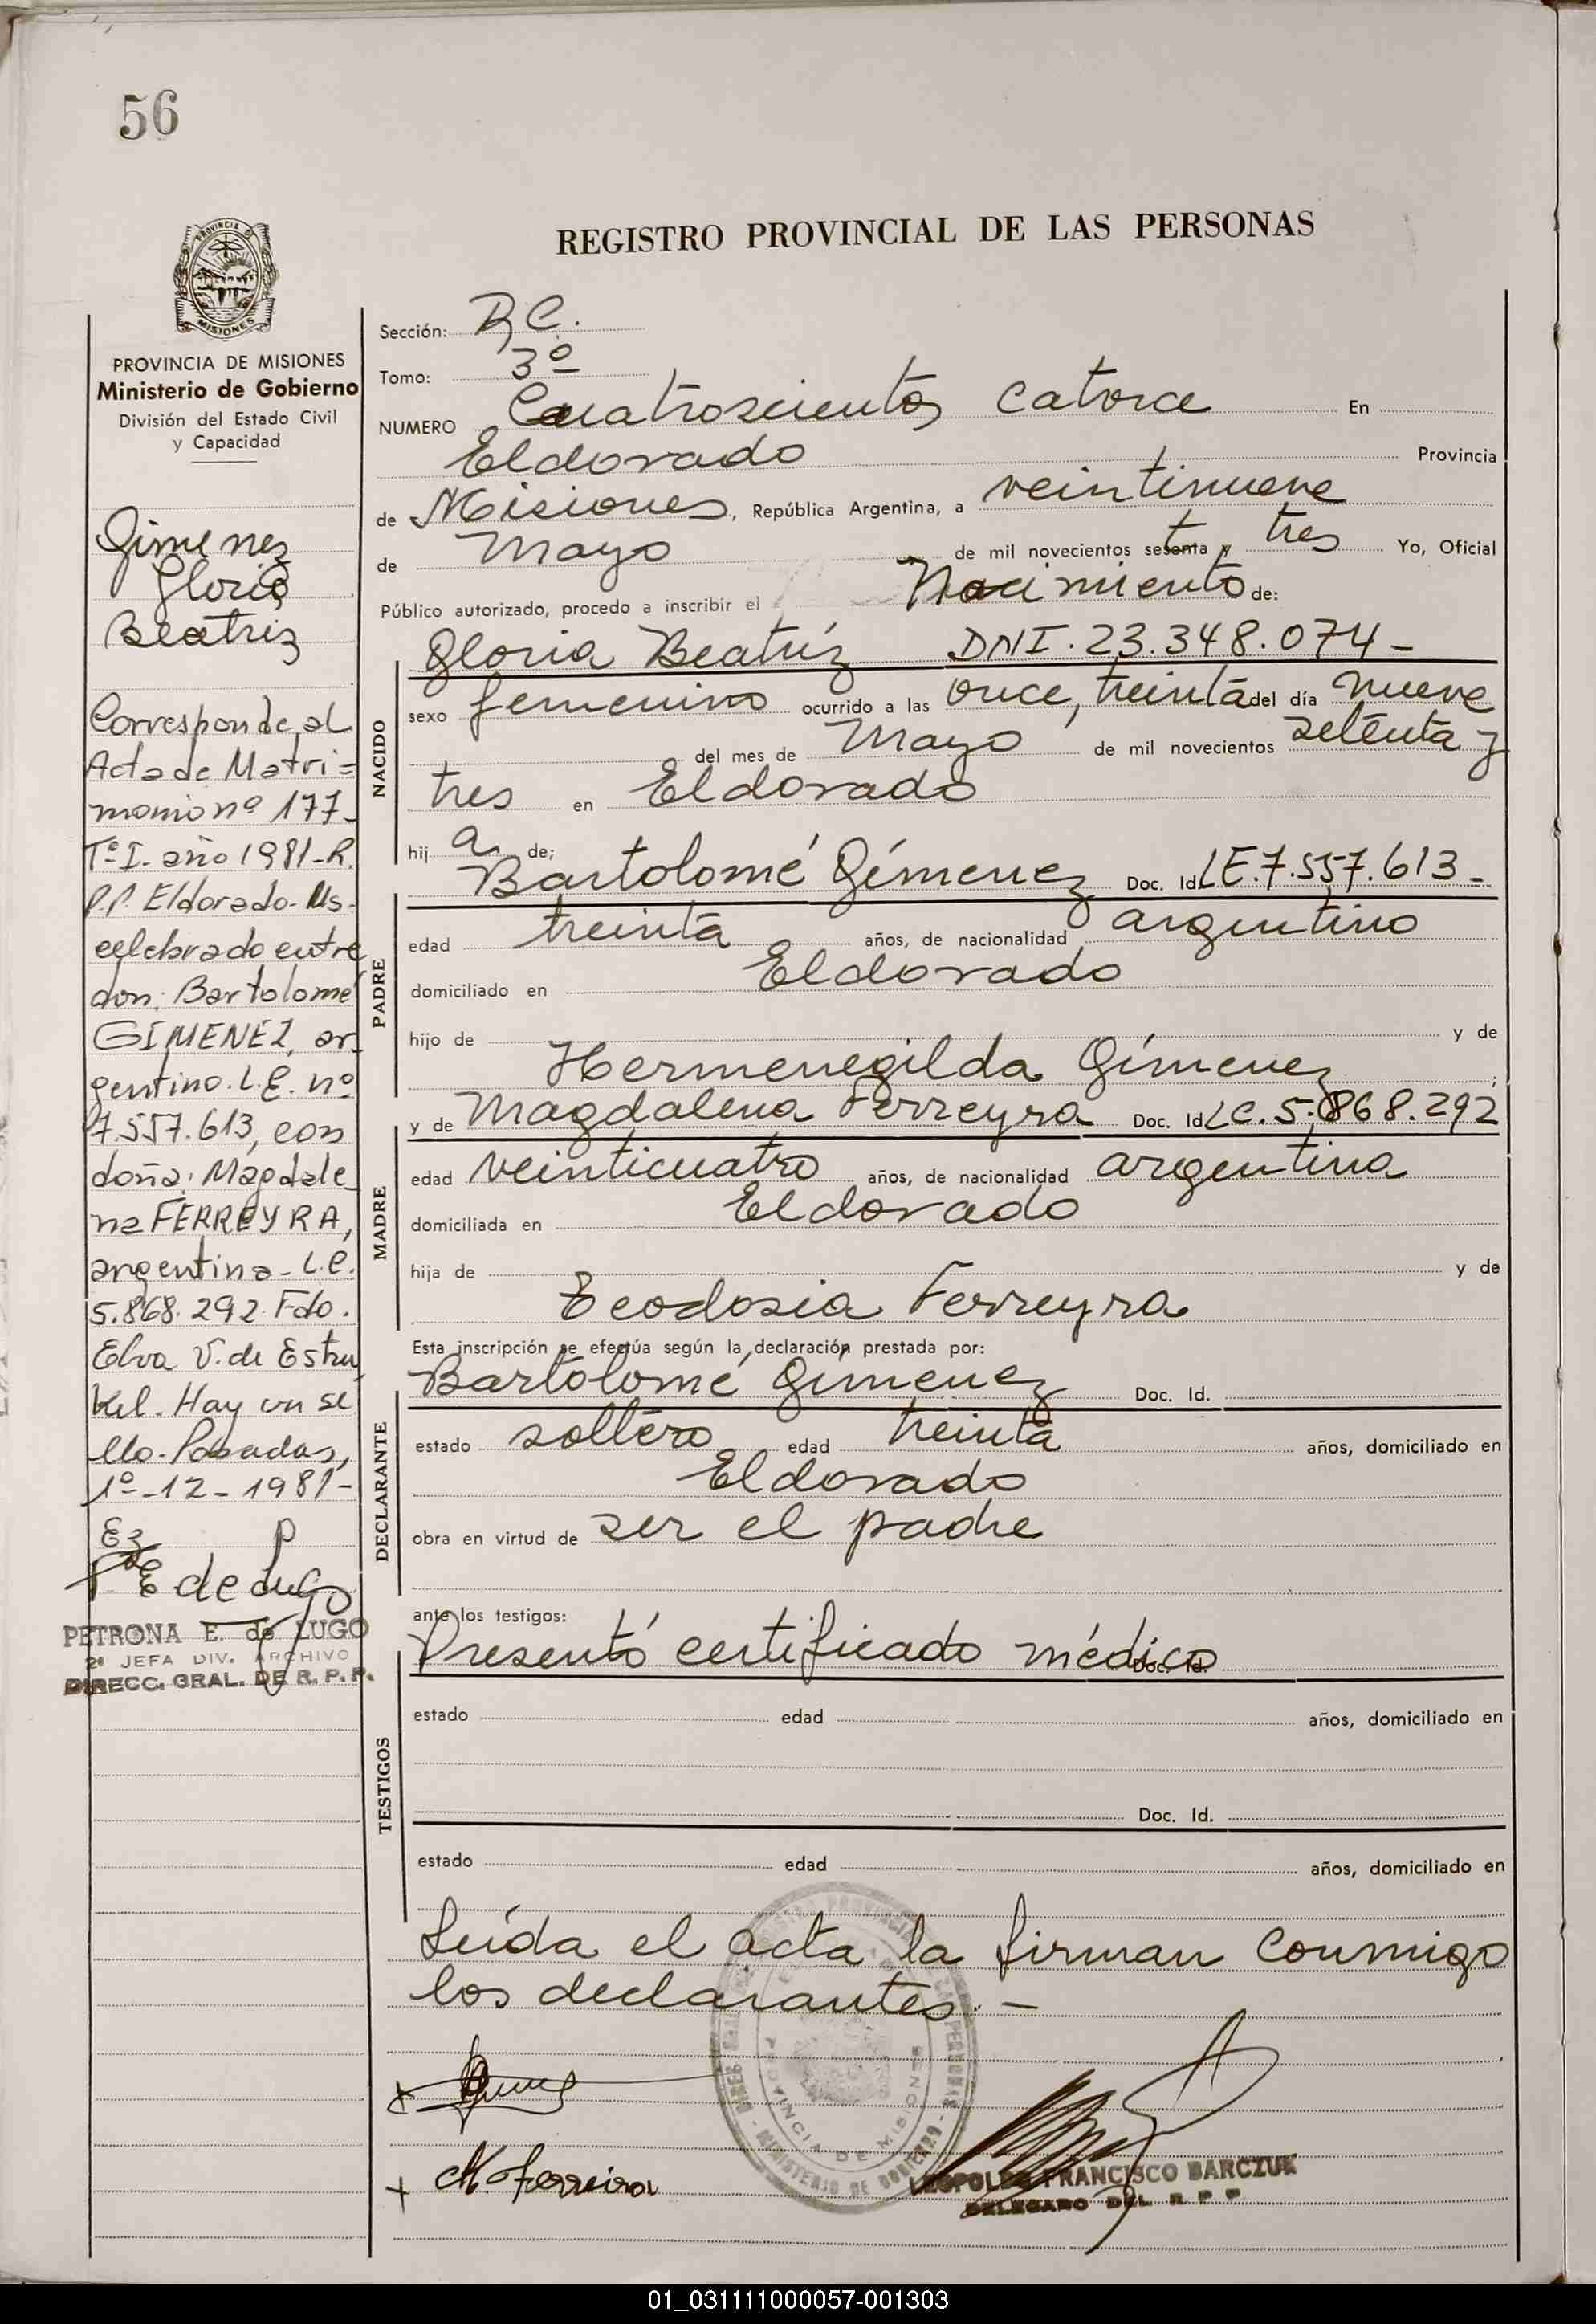 56
REGISTRO PROVINCIAL DE LAS PERSONAS
PROVINCIA DE
MISIONES
PROVINCIA DE MISIONES
Ministerio de Gobierno
División del Estado Civil
y Capacidad
Gimenez
Gloria
Beatriz
Corresponde al
Acta de Matri=
monio nº 177-
Tº I- año 1981-R.
P.P. Eldorado- Ms-
celebrado entre
don: Bartolomé
GIMENEZ, ar-
gentino. L.E. nº
7.557.613, con
doña: Magdale-
na FERREYRA,
argentina- L.C.
5.868.292. Fdo.
Elva V. de Estru
Kel. Hay un se
llo- Posadas,
1º-12-1981-
P E de Lugo
PETRONA E. de LUGO
2ª JEFA DIV. ARCHIVO
DIRECC. GRAL. DE R. P. P.
Sección: C.
Tomo: 3º
NUMERO Cuatroscientos catorce En
Eldorado Provincia
de Misiones, República Argentina, a veintinueve
de Mayo de mil novecientos setenta y tres Yo, Oficial
Público autorizado, procedo a inscribir el Nacimiento de:
NACIDO
Gloria Beatríz DNI.23.348.074-
sexo femenino ocurrido a las once, treinta del día nueve
del mes de Mayo de mil novecientos setenta y
tres en Eldorado
hij a de;
PADRE
Bartolomé Gímenez Doc. Id LE.7.557.613-
edad treinta años, de nacionalidad argentino
domiciliado en Eldorado
hijo de y de
Hermenegilda Gímenez ;
MADRE
y de Magdalena Ferreyra Doc. Id LC.5.868.292
edad veinticuatro años, de nacionalidad argentina
domiciliada en Eldorado
hija de y de
Teodosia Ferreyra
Esta inscripción se efectúa según la declaración prestada por:
DECLARANTE
Bartolomé Gímenez Doc. Id.
estado soltero edad treinta años, domiciliado en
Eldorado
obra en virtud de ser el padre
ante los testigos:
TESTIGOS
Presentó certificado médico Doc. Id.
estado edad años, domiciliado en
Doc. Id.
estado edad años, domiciliado en
Leída el acta la firman conmigo
los declarantes.-
PROVINCIA DE MISIONES
MINISTERIO DE GOBIERNO
M. Ferreira
LEOPOLDO FRANCISCO BARCZUK
DELEGADO DEL R P P
01_031111000057-001303